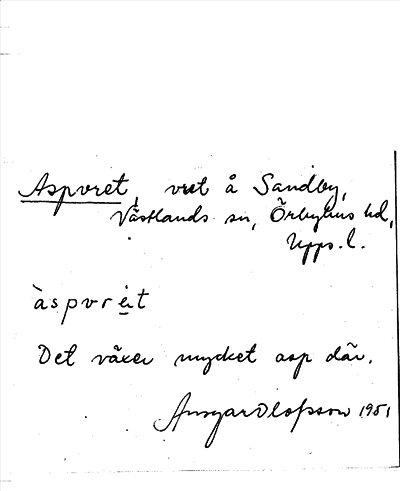 Aspvret, vret å Sandby,
Västlands sn, Örbyhus hd,
Upps. l.
àspvrèt
Det växer mycket asp där.
Ansgar Olofsson 1951